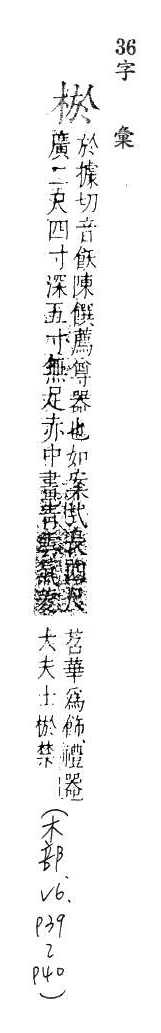 36
字彙
棜
於據切音飫陳饌薦尊器也如案長四尺
廣二尺四寸深五寸無足赤中畫靑雲氣菱
苕華爲飾禮器
大夫士棜禁
(木部 v6. p39 ~ p40)